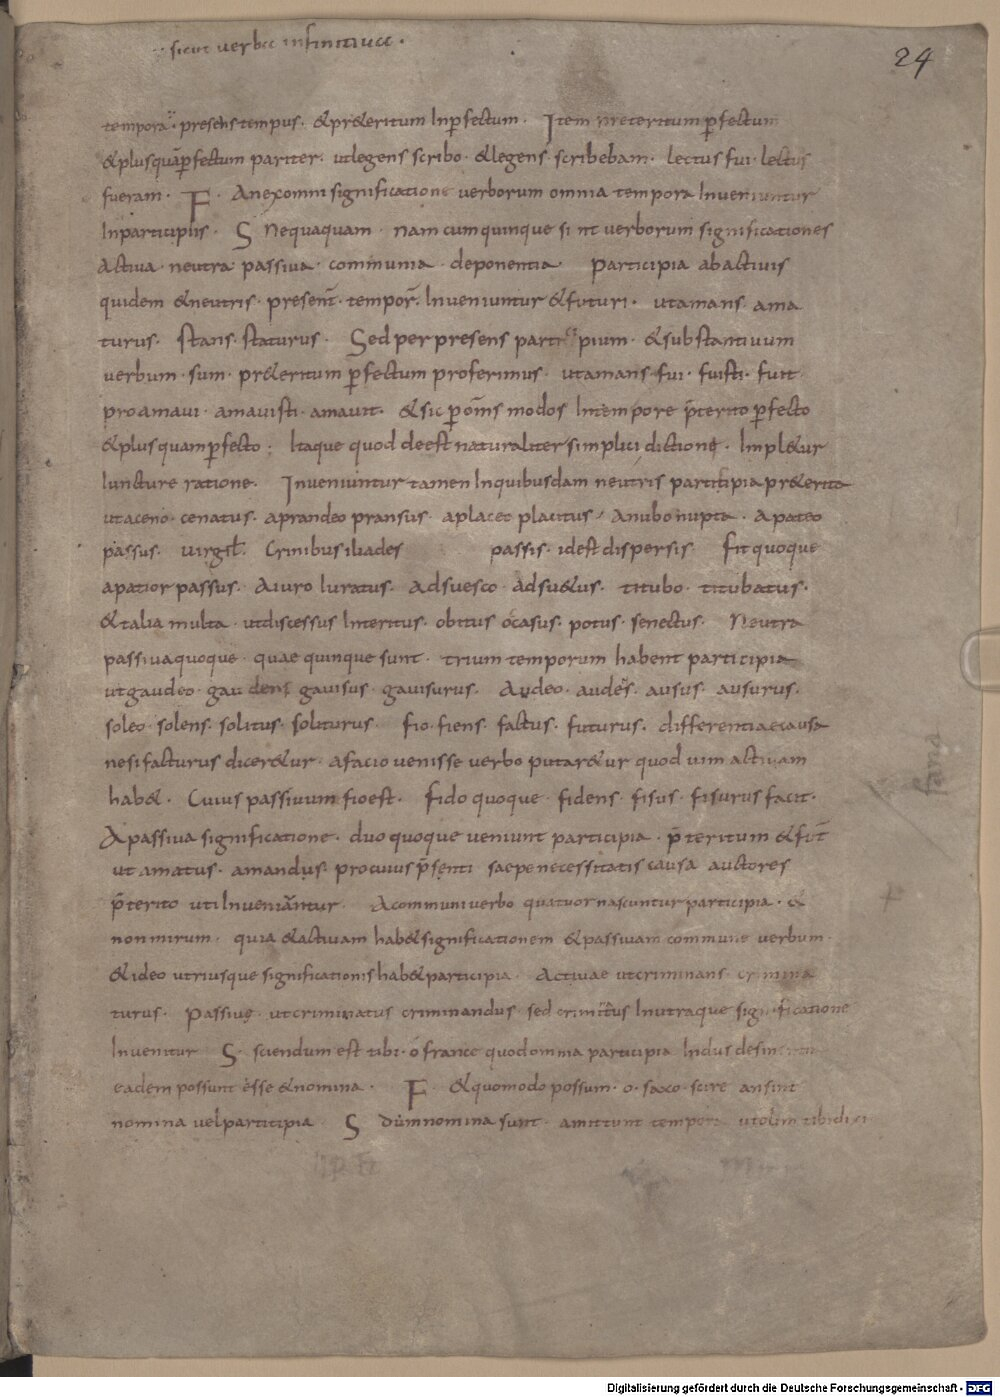 ·sicut verba infinitiva·
24
tempora· presens tempus· & pr&eritum Inp̄fectum· Item preteritum p̄fectum
& plusquāp̄fectum pariter· ut legens scribo· & legens scribebam· lectus fui· lectus
fueram· F· An ex omni significatione verborum omnia tempora Inveniuntur
In participiis· S Nequaquam· nam cum quinque sint verborum significationes
activa· neutra· passiva· communia· deponentia· Participia ab activis
quidem & neutris· presenť· tempoř· Inveniuntur & futuri· ut amans· ama
turus· stans· staturus· Sed per presens participium· & substantivum
verbum· sum· pr&eritum p̄fectum proferimus· ut amans fui· fuisti· fuit·
pro amavi· amavisti· amavit· & sic p̄ om̄s modos In tempore p̄terito p̄fecto
& plusquamp̄fecto; Itaque quod deest naturaliter simplici dictione· Impl&ur
Iuncture ratione· Inveniuntur tamen In quibusdam neutris participia pr&erita
ut aceno· cenatus· a prandeo pransus· a placet placitus· A nubo nupta· A pateo
passus· virgƚ· Crinibus iliades passis· id est dispersis Fit quoque
a patior passus· A iuro Iuratus· Adsuesco· adsu&us· titubo· titubatus·
& talia multa· ut discessus Interitus· obitus ocasus· potus· senectus· Neutra
passiva quoque· quae quinque sunt· trium temporum habent participia
ut gaudeo· gaudens gavisus· gavisurus· Audeo· audes· ausus· ausurus·
soleo· solens· solitus· soliturus· fio· fiens· factus· futurus· differentiae causa
ne si facturus dicer&ur· a facio venisse verbo putar&ur quod vim activam
hab&· Cuius passivum fio est· fido quoque· fidens· fisus· fisurus facit·
A passiva significatione· duo quoque veniunt participia· p̄teritum & fuť
ut amatus· amandus· pro cuius p̄senti saepe necessitatis causa auctores
p̄terito uti Inveniuntur· A communi verbo quatuor nascuntur participia· &
non mirum· quia & activam hab& significationem & passivam commune verbum·
& ideo utriusque significationis hab& participia· Activae ut criminans· crimina
turus· Passive· ut criminatus criminandus· sed criminatus In utraque significatione
Invenitur S· sciendum est tibi· o france quod omnia participia In dus desinentia
eadem possunt esse & nomina· F & quomodo possum· o· saxo· scire an sint
nomina vel participia S dum nomina sunt· amittunt tempora ut olim tibi dixi
fama
Digitalisierung gefördert durch die Deutsche Forschungsgemeinschaft - DFG